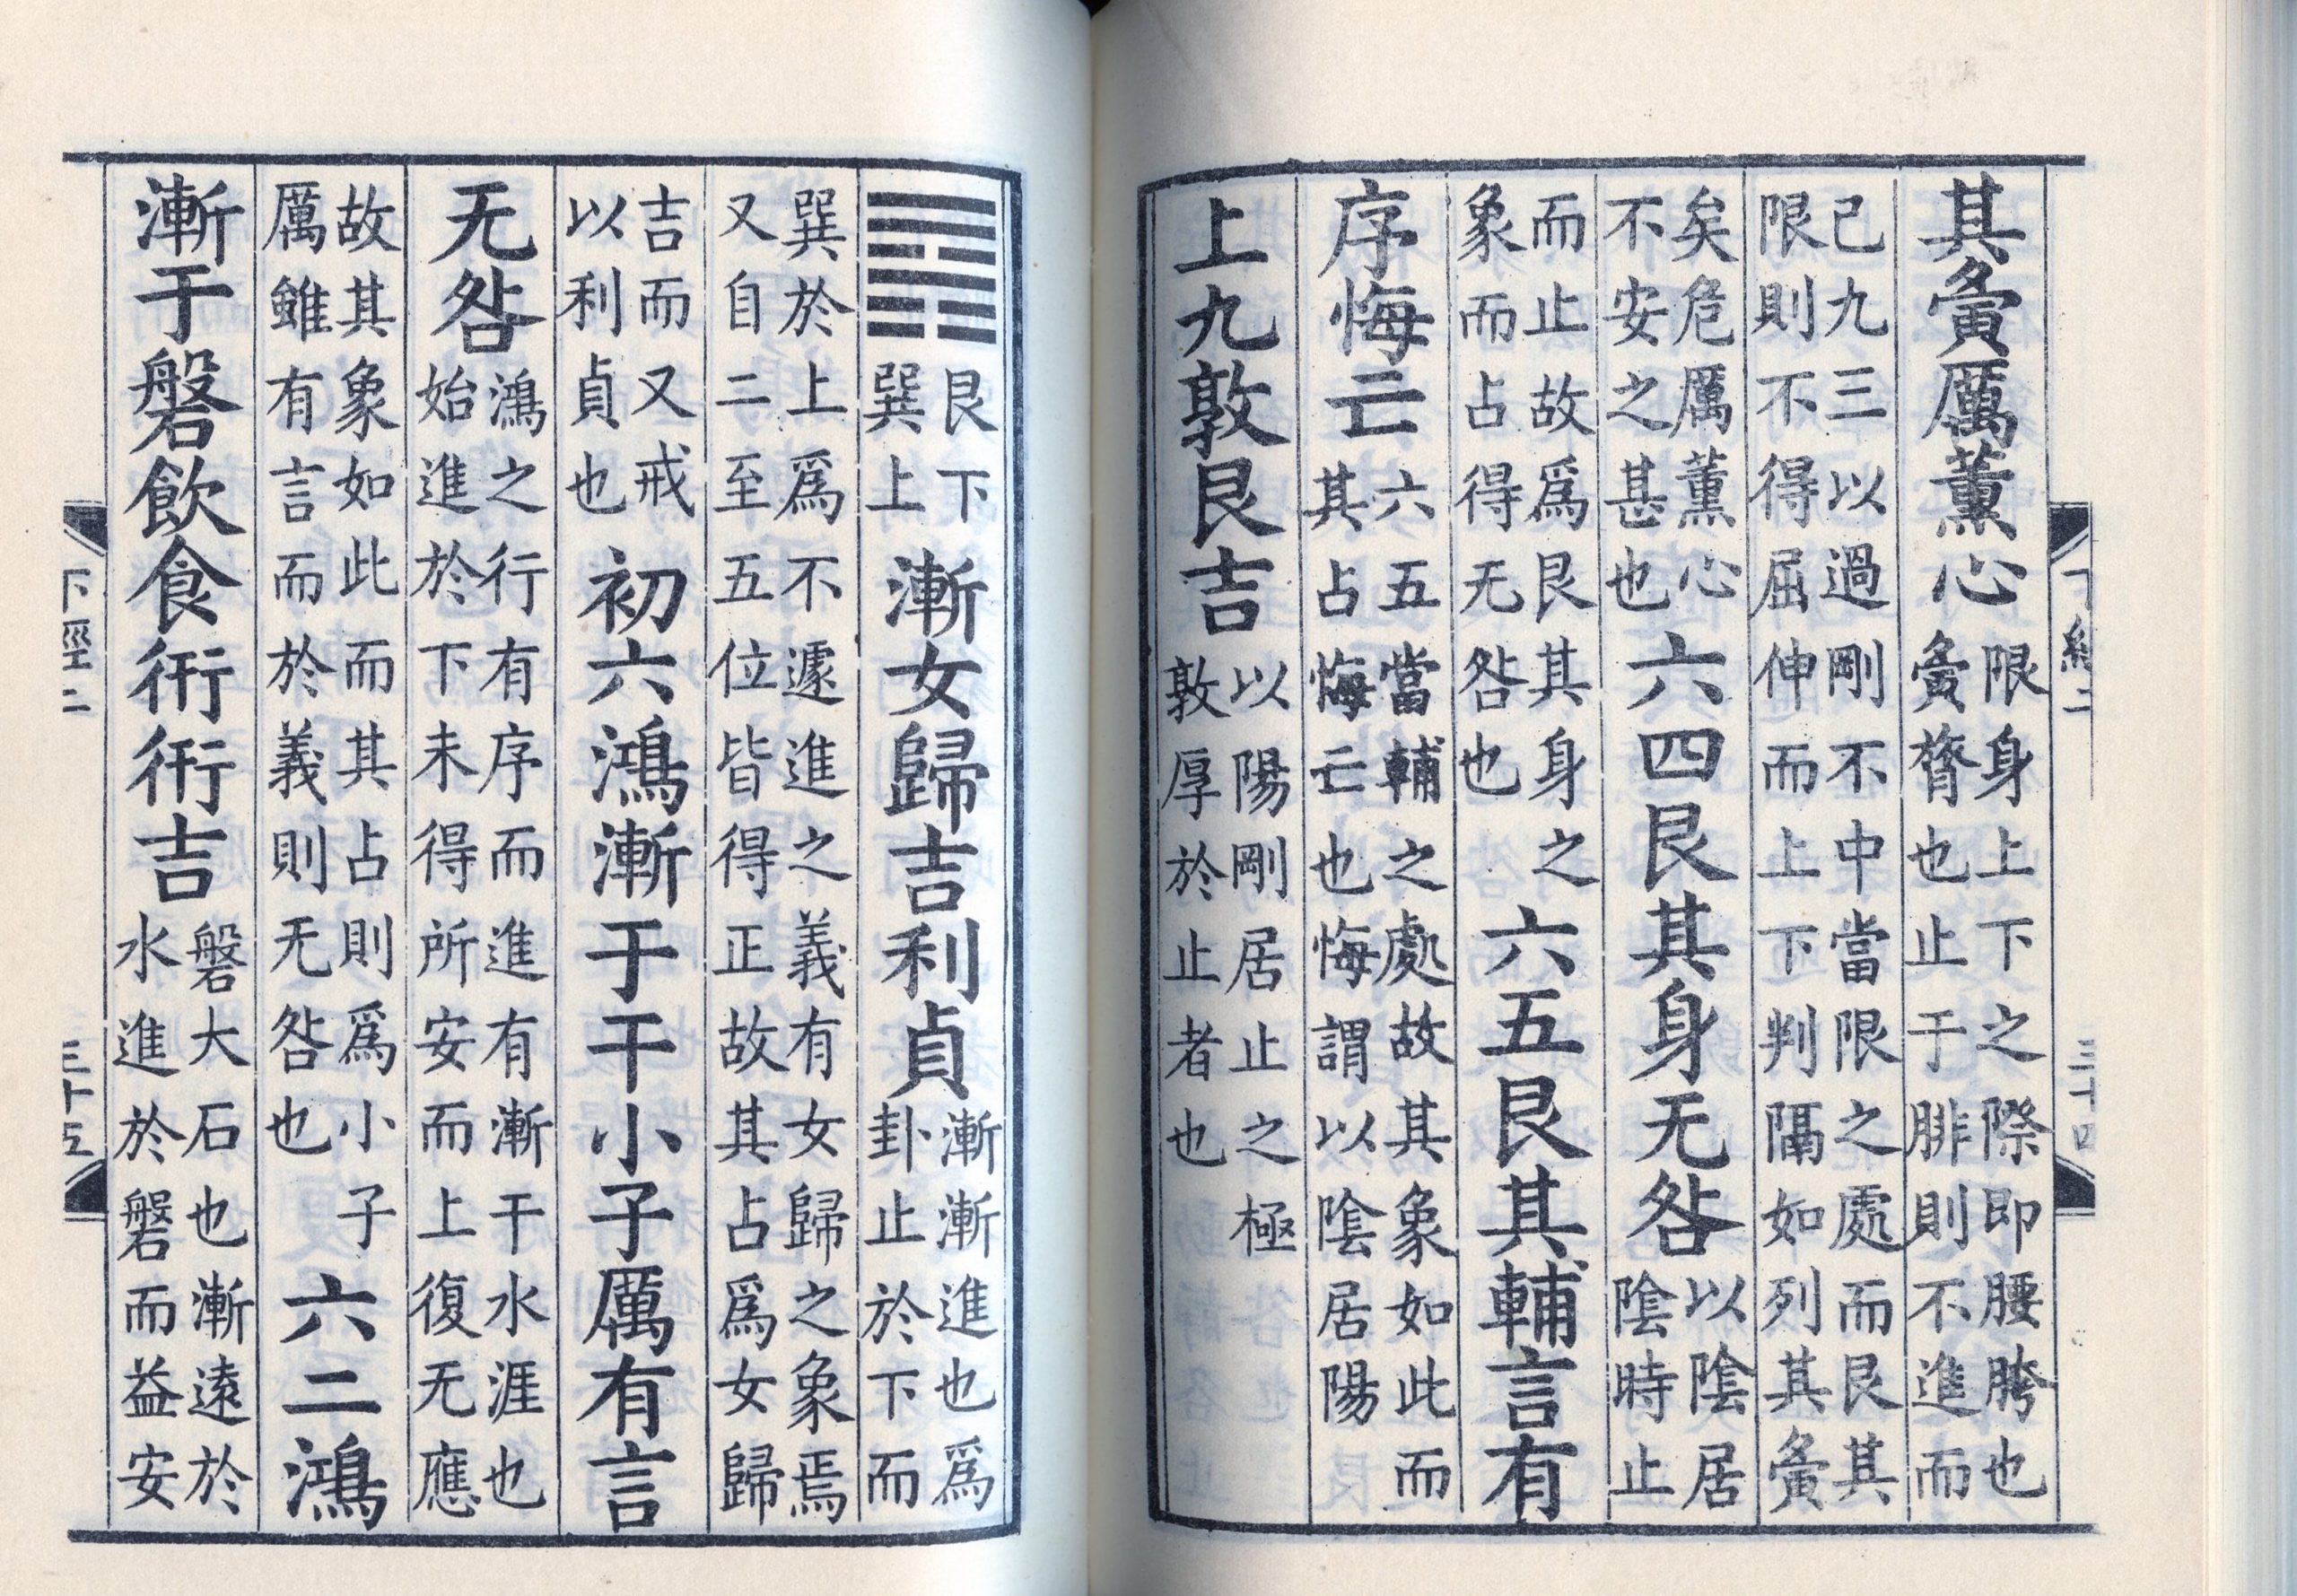 下經二
三十四
其夤厲薰心限身上下之際即腰胯也夤膂也止于腓則不進而
已九三以過剛不中當限之處而艮其限則不得屈伸而上下判隔如列其夤
矣危厲薰心不安之甚也六四艮其身无咎以陰居陰時止
而止故爲艮其身之象而占得无咎也六五艮其輔言有
序悔亡六五當輔之處故其象如此而其占悔亡也悔謂以陰居陽
上九敦艮吉以陽剛居止之極敦厚於止者也
艮下巽上漸女歸吉利貞漸漸進也爲卦止於下而
巽於上爲不遽進之義有女歸之象焉又自二至五位皆得正故其占爲女歸
吉而又戒以利貞也初六鴻漸于干小子厲有言
无咎鴻之行有序而進有漸干水涯也始進於下未得所安而上復无應
故其象如此而其占則爲小子厲雖有言而於義則无咎也六二鴻
漸于磐飲食衎衎吉磐大石也漸遠於水進於磐而益安
下經二
三十五